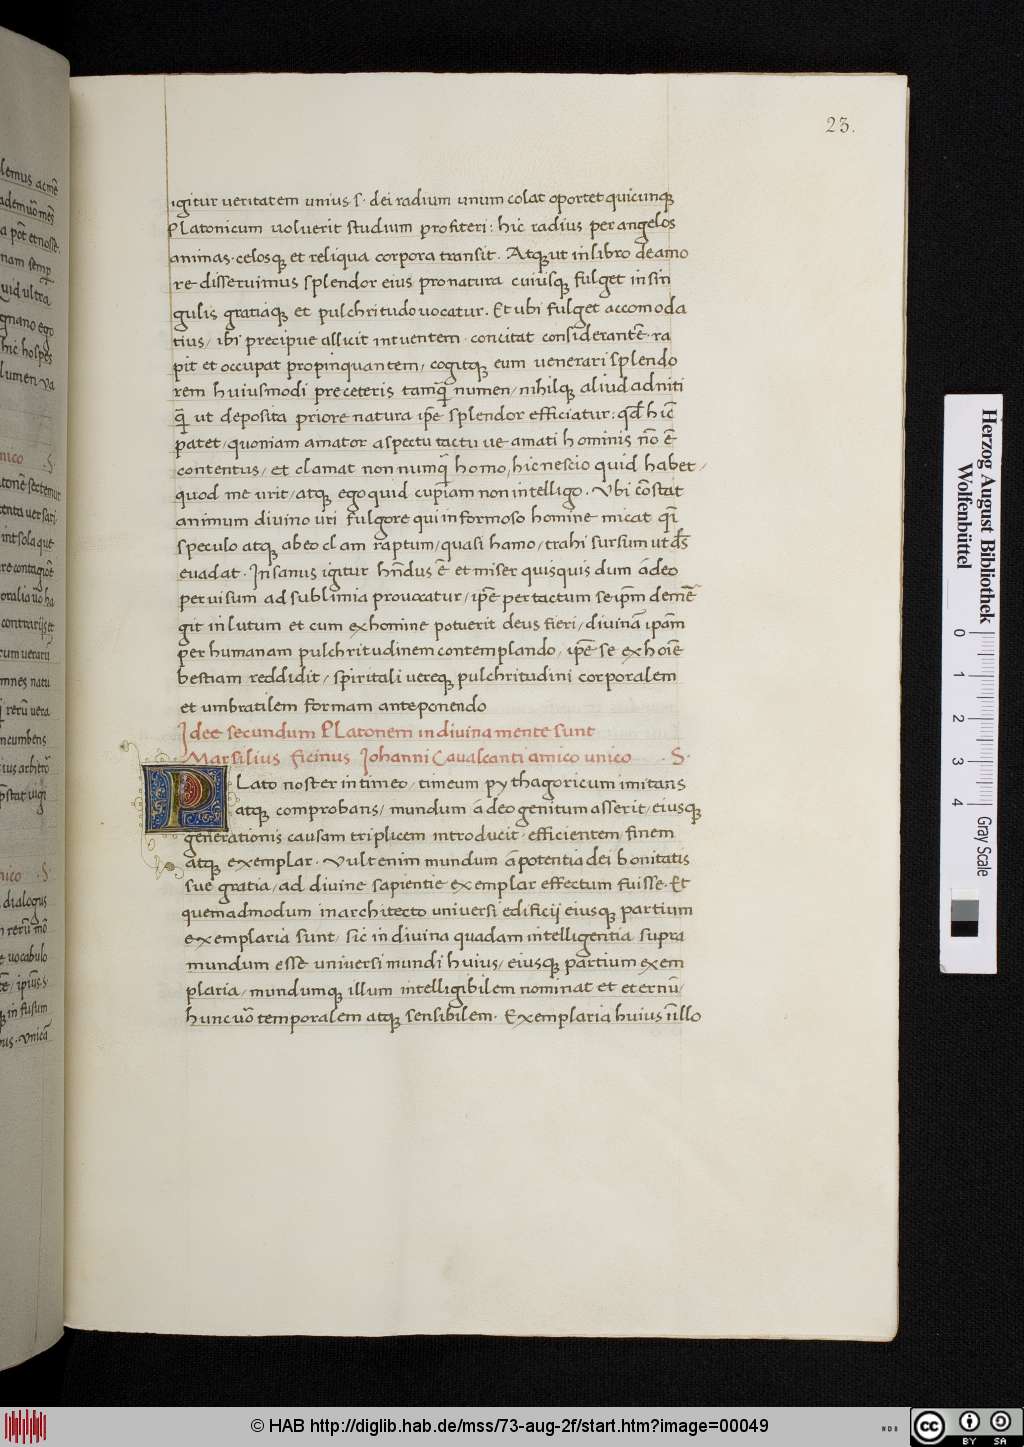 23.
igitur ueritatem unius .s. dei radium unum colat oportet quicunqꝫ
Platonicum uoluerit studium profiteri: hic radius per angelos
animas celosqꝫ et reliqua corpora transit. Atqꝫ ut in libro de amo
re disseruimus splendor eius pro natura cuiusqꝫ fulget in sin
gulis gratiaqꝫ et pulchritudo uocatur. Et ubi fulget accomoda
tius, ibi precipue allicit intuentem concitat considerantē ra
pit et occupat propinquantem, cogitqꝫ eum uenerari splendo
rem huiusmodi pre ceteris tamq̄ numen, nihilqꝫ aliud adniti
q̄ ut deposita priore natura ip̄e splendor efficiatur: qđ hīc
patet, quoniam amator aspectu tactu ue amati hominis nō ē
contentus, et clamat non numq̄ homo, hic nescio quid habet,
quod me urit, atqꝫ ego quid cupiam non intelligo. Vbi cōstat
animum diuino uri fulgore qui in formoso homine micat q̄i
speculo atqꝫ ab eo clam raptum, quasi hamo, trahi sursum ut đs
euadat. Insanus igitur hn̄dus ē et miser quisquis dum ādeo
per uisum ad sublimia prouocatur, ip̄e per tactum se ip̄m demē
git in lutum et cum ex homine potuerit deus fieri, diuinā ipām
per humanam pulchritudinem contemplando, ip̄e se ex hoīe
bestiam reddidit, spiritali uereqꝫ pulchritudini corporalem
et umbratilem formam anteponendo
Idee secundum Platonem in diuina mente sunt
Marsilius ficinus Iohanni Caualcanti amico unico .S.
Plato noster in timeo, timeum pythagoricum imitans
atqꝫ comprobans, mundum ā deo genitum asserit, eiusqꝫ
generationis causam triplicem introducit, efficientem, finem
atqꝫ exemplar. Vult enim mundum ā potentia dei bonitatis
sue gratia, ad diuine sapientie exemplar effectum fuisse. Et
quemadmodum in architecto uniuersi edificij eiusqꝫ partium
exemplaria sunt, sic in diuina quadam intelligentia supra
mundum esse uniuersi mundi huius, eiusqꝫ partium exem
plaria, mundumqꝫ illum intelligibilem nominat et eternū,
hunc uō temporalem atqꝫ sensibilem. Exemplaria huius īllo
Herzog August Bibliothek
Wolfenbüttel
0 1 2 3 4
Gray Scale
© HAB http://diglib.hab.de/mss/73-aug-2f/start.htm?image=00049
WDB
cc BY SA